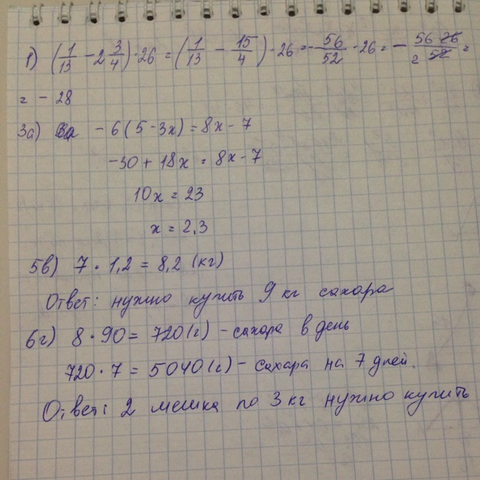 1) (1/13 - 2 3/4) · 26 = (1/13 - 15/4) · 26 = - 56/52 · 26 = - 56 26/2 52 =
= - 28
3а) - 6 (5 - 3x) = 8x - 7
-30 + 18x = 8x - 7
10x = 23
x = 2,3
5в) 7 · 1,2 = 8,2 (кг)
Ответ: нужно купить 9 кг сахара
6г) 8 · 90 = 720 (г) - сахара в день
720 · 7 = 5040 (г) - сахара на 7 дней.
Ответ: 2 мешка по 3 кг нужно купить